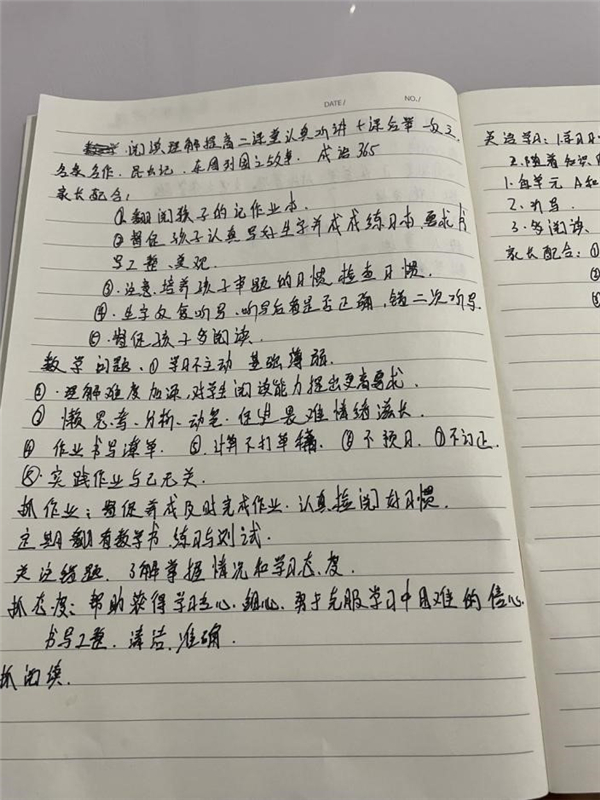 DATE/ NO./
阅读理解提高二课堂认真听讲+课后举一反三
名家名作.昆虫记.东周列国之故事. 成语365
家长配合:
①翻阅孩子的记作业本.
②督促孩子认真写好生字并成成练习本.要求书
写工整、美观.
③.注意.培养孩子审题的习惯 检查习惯.
④.生字反复听写.听写后看是否正确,错二次听写.
⑤.督促孩子多阅读.
数学问题.①学习不主动 基础薄弱.
②.理解难度加深,对学生阅读能力提出更高要求.
③ 懒思考、分析、动笔.使畏难情绪滋长.
④ 作业书写潦草. ⑤.计算不打草稿. ⑥不预习.⑦不订正.
⑧.实践作业与己无关.
抓作业:督促养成及时完成作业.认真检阅好习惯.
定期翻看数学书、练习与测试.
关注错题.了解掌握情况和学习态度.
抓态度:帮助获得学习专心.细心.勇于克服学习中困难的信心.
书写工整.清洁.准确.
抓阅读.
英语学习:1.学习
2.随着知识
1.每单元 A和
2.听写.
3.多阅读、
家长配合:①
②
③